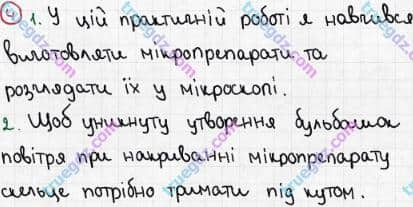 4 1. У цій практичній роботі я навчився
виготовляти мікропрепарати та
розглядати їх у мікроскопі.
2. Щоб уникнуту утворення бульбашок
повітря при накриванні мікропрепарату
скельце потрібно тримати під кутом.
truegdz.com